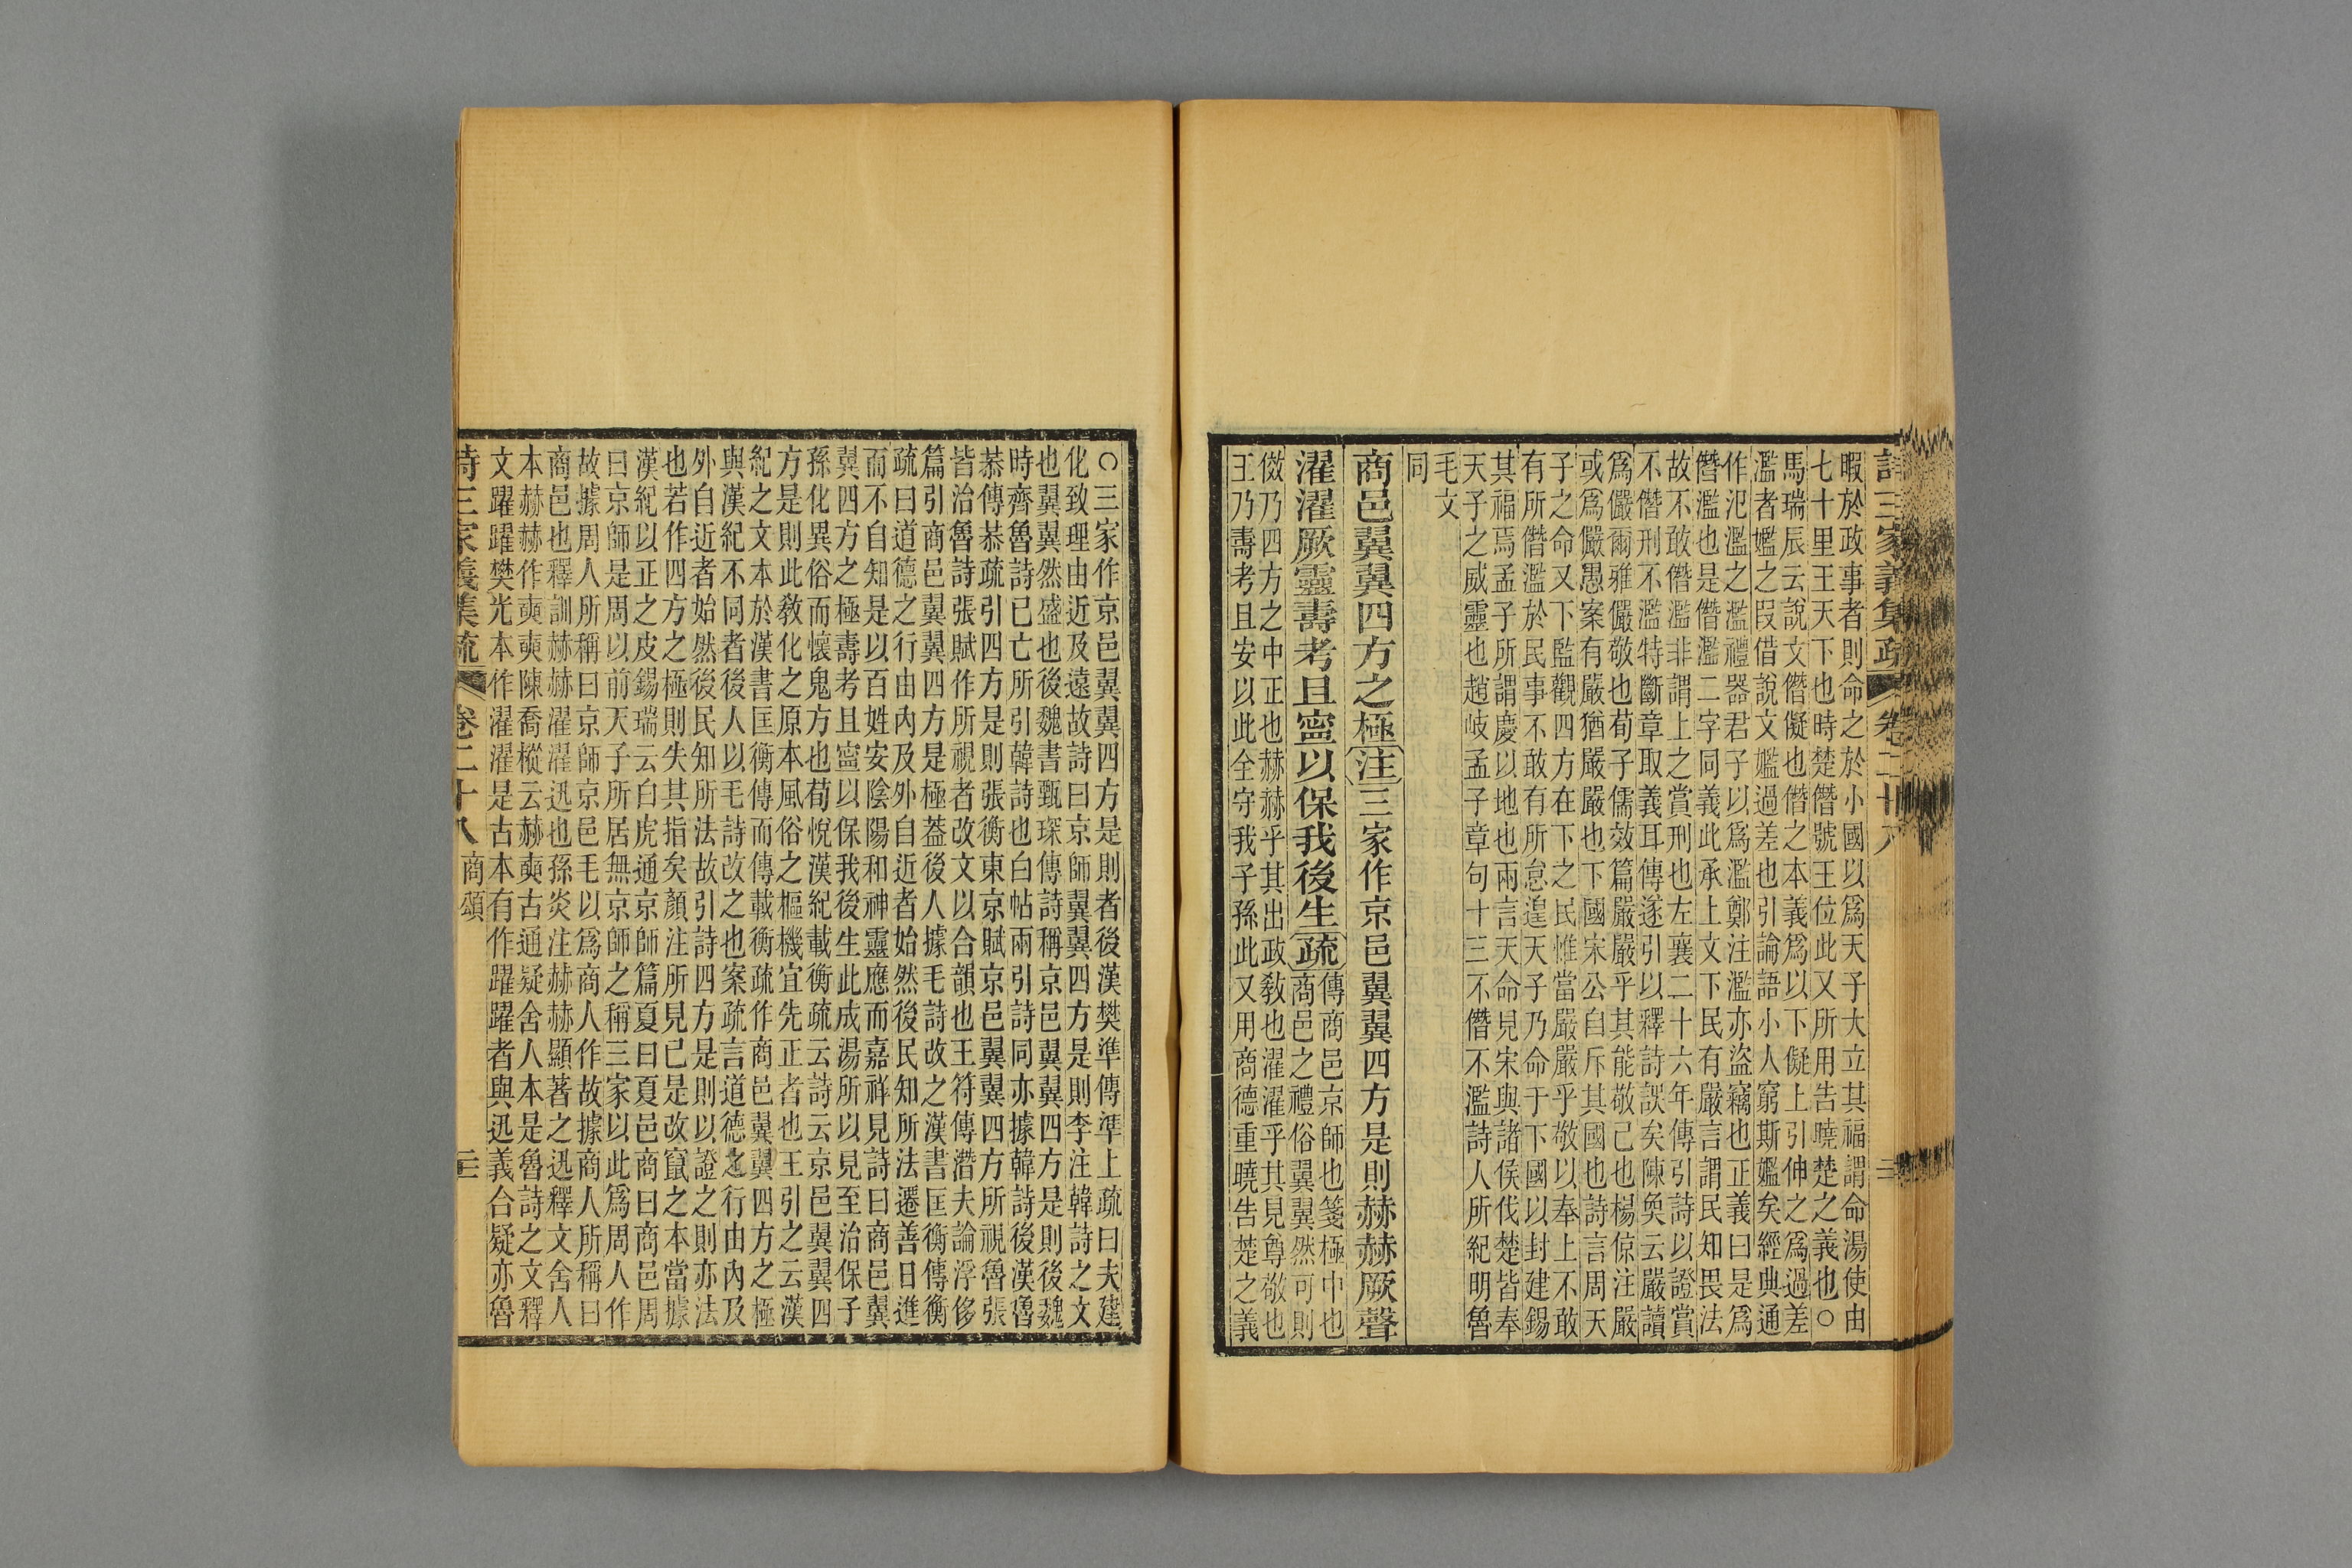 詩三家義集疏 卷二十八
暇於政事者則命之於小國以爲天子大立其福謂命湯使由
七十里王天下也時楚僭號王位此又所用告曉楚之義也○
馬瑞辰云說文僭儗也僭之本義爲以下儗上引伸之爲過差
濫者㜮之叚借說文㜮過差也引論語小人窮斯㜮矣經典通
作氾濫之濫禮器君子以爲濫鄭注濫亦盜竊也正義曰是爲
僭濫也是僭濫二字同義此承上文下民有嚴言謂民知畏法
故不敢僭濫非謂上之賞刑也左襄二十六年傳引詩以證賞
不僭刑不濫特斷章取義耳傳遂引以釋詩誤矣陳奐云嚴讀
爲儼爾雅儼敬也荀子儒效篇嚴嚴乎其能敬己也楊倞注嚴
或爲儼愚案有嚴猶嚴嚴也下國宋公自斥其國也詩言周天
子之命又下監觀四方在下之民惟當嚴嚴乎敬以奉上不敢
有所僭濫於民事不敢有所怠遑天子乃命于下國以封建錫
其福焉孟子所謂慶以地也兩言天命見宋與諸侯伐楚皆奉
天子之威靈也趙岐孟子章句十三不僭不濫詩人所紀明魯
毛文
同
商邑翼翼四方之極注三家作京邑翼翼四方是則赫赫厥聲
濯濯厥靈壽考且寧以保我後生疏
傳商邑京師也箋極中也
商邑之禮俗翼翼然可則
傚乃四方之中正也赫赫乎其出政敎也濯濯乎其見尊敬也
王乃壽考且安以此全守我子孫此又用商德重曉告楚之義
○三家作京邑翼翼四方是則者後漢樊準傳準上疏曰夫建
化致理由近及遠故詩曰京師翼翼四方是則李注韓詩之文
也翼翼然盛也後魏書甄琛傳詩稱京邑翼翼四方是則後魏
時齊魯詩已亡所引韓詩也白帖兩引詩同亦據韓詩後漢魯
恭傳恭疏引四方是則張衡東京賦京邑翼翼四方所視魯張
皆治魯詩張賦作所視者改文以合韻也王符傳潛夫論浮侈
篇引商邑翼翼四方是極葢後人據毛詩改之漢書匡衡傳衡
疏曰道德之行由內及外自近者始然後民知所法遷善日進
而不自知是以百姓安陰陽和神靈應而嘉祥見詩曰商邑翼
翼四方之極壽考且寧以保我後生此成湯所以見至治保子
孫化異俗而懷鬼方也荀悅漢紀載衡疏云詩云京邑翼翼四
方是則此敎化之原本風俗之樞機宜先正者也王引之云漢
紀之文本於漢書匡衡傳而傳載衡疏作商邑翼翼四方之極
與漢紀不同者後人以毛詩改之也案疏言道德之行由內及
外自近者始然後民知所法故引詩四方是則以證之則亦法
也若作四方之極則失其指矣顏注所見已是改竄之本當據
漢紀以正之皮錫瑞云白虎通京師篇夏曰夏邑商曰商邑周
曰京師是周以前天子所居無京師之稱三家以此爲周人作
故據周人所稱曰京師京邑毛以爲商人作故據商人所稱曰
商邑也釋訓赫赫濯濯迅也孫炎注赫赫顯著之迅釋文舍人
本赫赫作奭奭陳喬樅云赫奭古通疑舍人本是魯詩之文釋
文躍躍樊光本作濯濯是古本有作躍躍者與迅義合疑亦魯
詩三家義集疏 卷二十八 商頌 三